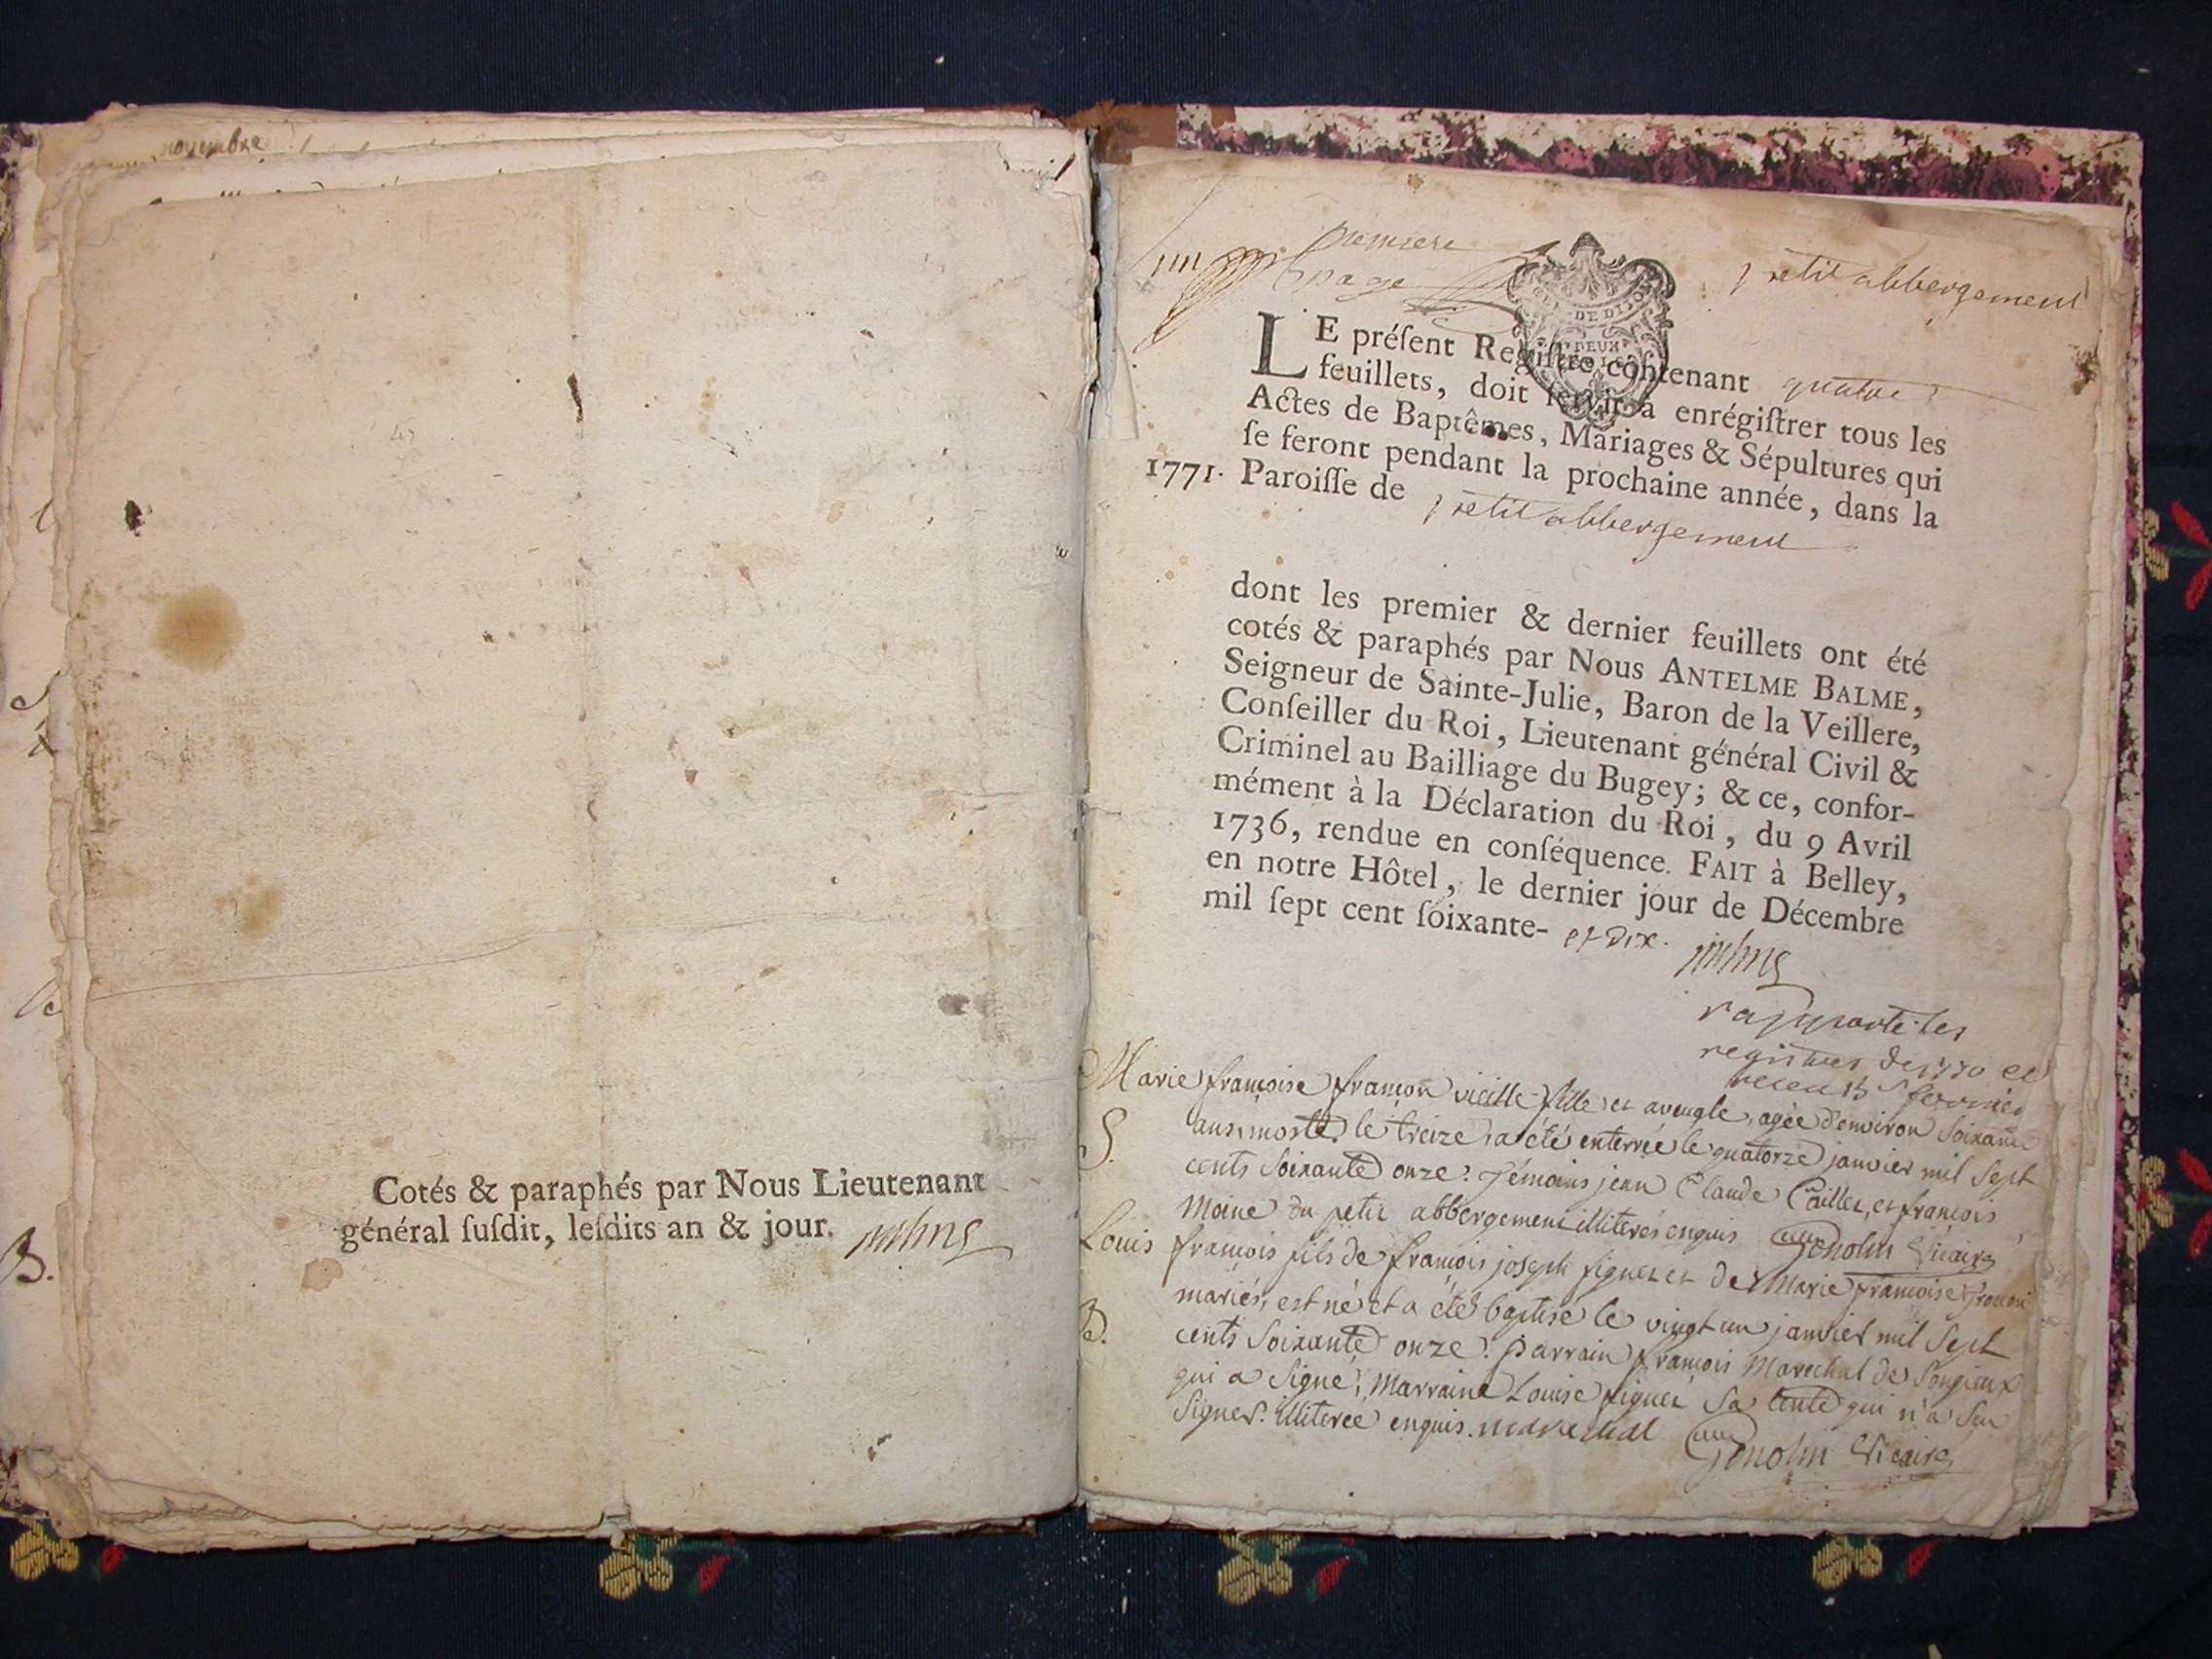 novembre
Cotés & paraphés par Nous Lieutenant
général ſuſdit, leſdits an & jour.
B.
premiere
page
petit abbergement
DE DIJON
DEUX
LE préſent Regiſtre contenant quatre
feuillets, doit ſervir à enrégiſtrer tous les
Actes de Baptêmes, Mariages & Sépultures qui
ſe feront pendant la prochaine année, dans la
1771. Paroiſſe de petit abbergement
dont les premier & dernier feuillets ont été
cotés & paraphés par Nous ANTELME BALME,
Seigneur de Sainte-Julie, Baron de la Veillere,
Conſeiller du Roi, Lieutenant général Civil &
Criminel au Bailliage du Bugey; & ce, confor-
mément à la Déclaration du Roi, du 9 Avril
1736, rendue en conſéquence. FAIT à Belley,
en notre Hôtel, le dernier jour de Décembre
mil ſept cent ſoixante- et dix.
rapporté les
registres de 1770 et
Marie françoise françon vieille fille et aveugle, agée d'environ soixante
S. ans, morte le treize, a été enterrée le quatorze janvier mil sept
cents soixante onze. Témoins jean Claude Caillet, et françois
Moine du petit abbergement illiterés enquis Genolin Vicaire
Louis françois fils de françois joseph figuet et de Marie françoise
mariés, est né et a été baptisé le vingt un janvier mil sept
B. cents soixante onze. parrain françois Marechal de Songieux
qui a signé, Marraine Louise figuet sa tente qui n'a seu
signer. illiteree enquis. marechal Genolin Vicaire